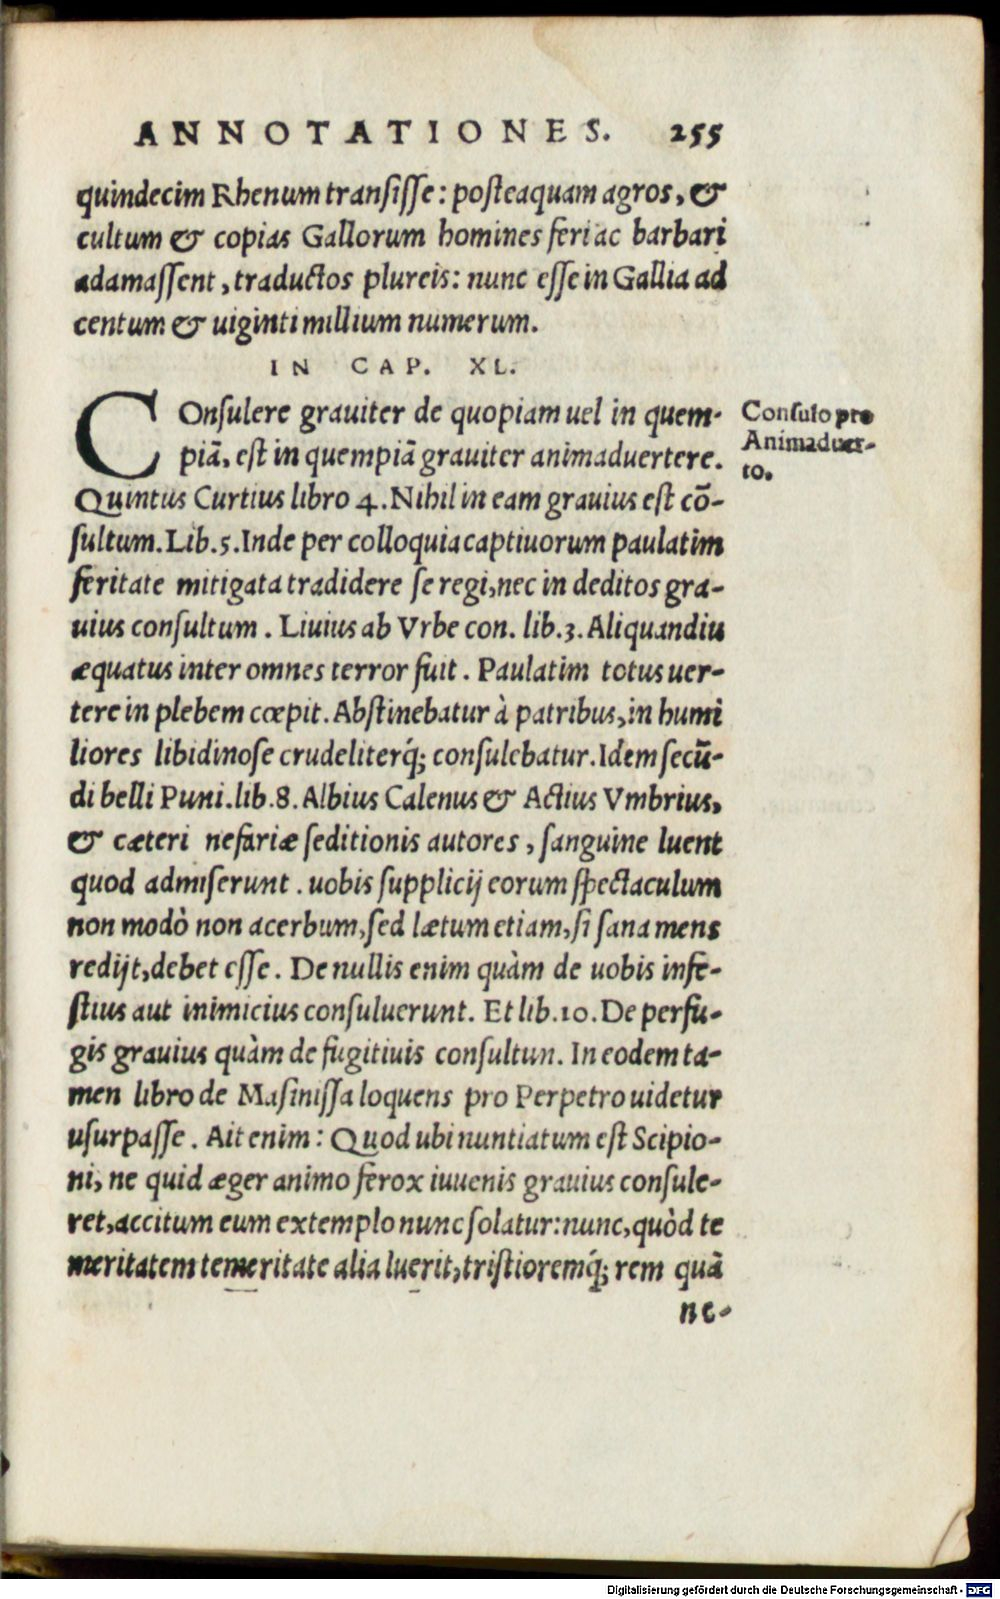 ANNOTATIONES. 255
quindecim Rhenum transisse: posteaquam agros, &
cultum & copias Gallorum homines feri ac barbari
adamassent, traductos plureis: nunc esse in Gallia ad
centum & uiginti millium numerum.
IN CAP. XL.
COnsulere grauiter de quopiam uel in quem-
piā, est in quempiā grauiter animaduertere.
Consulo pro
Animaduer-
to.
Quintus Curtius libro 4. Nihil in eam grauius est cō-
sultum. Lib. 5. Inde per colloquia captiuorum paulatim
feritate mitigata tradidere se regi, nec in deditos gra-
uius consultum. Liuius ab Vrbe con. lib. 3. Aliquandiu
æquatus inter omnes terror fuit. Paulatim totus uer-
tere in plebem cœpit. Abstinebatur à patribus, in humi
liores libidinose crudeliterq́; consulebatur. Idem secū-
di belli Puni. lib. 8. Albius Calenus & Actius Vmbrius,
& cæteri nefariæ seditionis autores, sanguine luent
quod admiserunt. uobis supplicij eorum spectaculum
non modò non acerbum, sed lætum etiam, si sana mens
redijt, debet esse. De nullis enim quàm de uobis infe-
stius aut inimicius consuluerunt. Et lib. 10. De perfu-
gis grauius quàm de fugitiuis consultun. In eodem ta-
men libro de Masinissa loquens pro Perpetro uidetur
usurpasse. Ait enim: Quod ubi nuntiatum est Scipio-
ni, ne quid æger animo ferox iuuenis grauius consule-
ret, accitum eum extemplo nunc solatur: nunc, quòd te
meritatem temeritate alia luerit, tristioremq́; rem quā
ne-
Digitalisierung gefördert durch die Deutsche Forschungsgemeinschaft - DFG